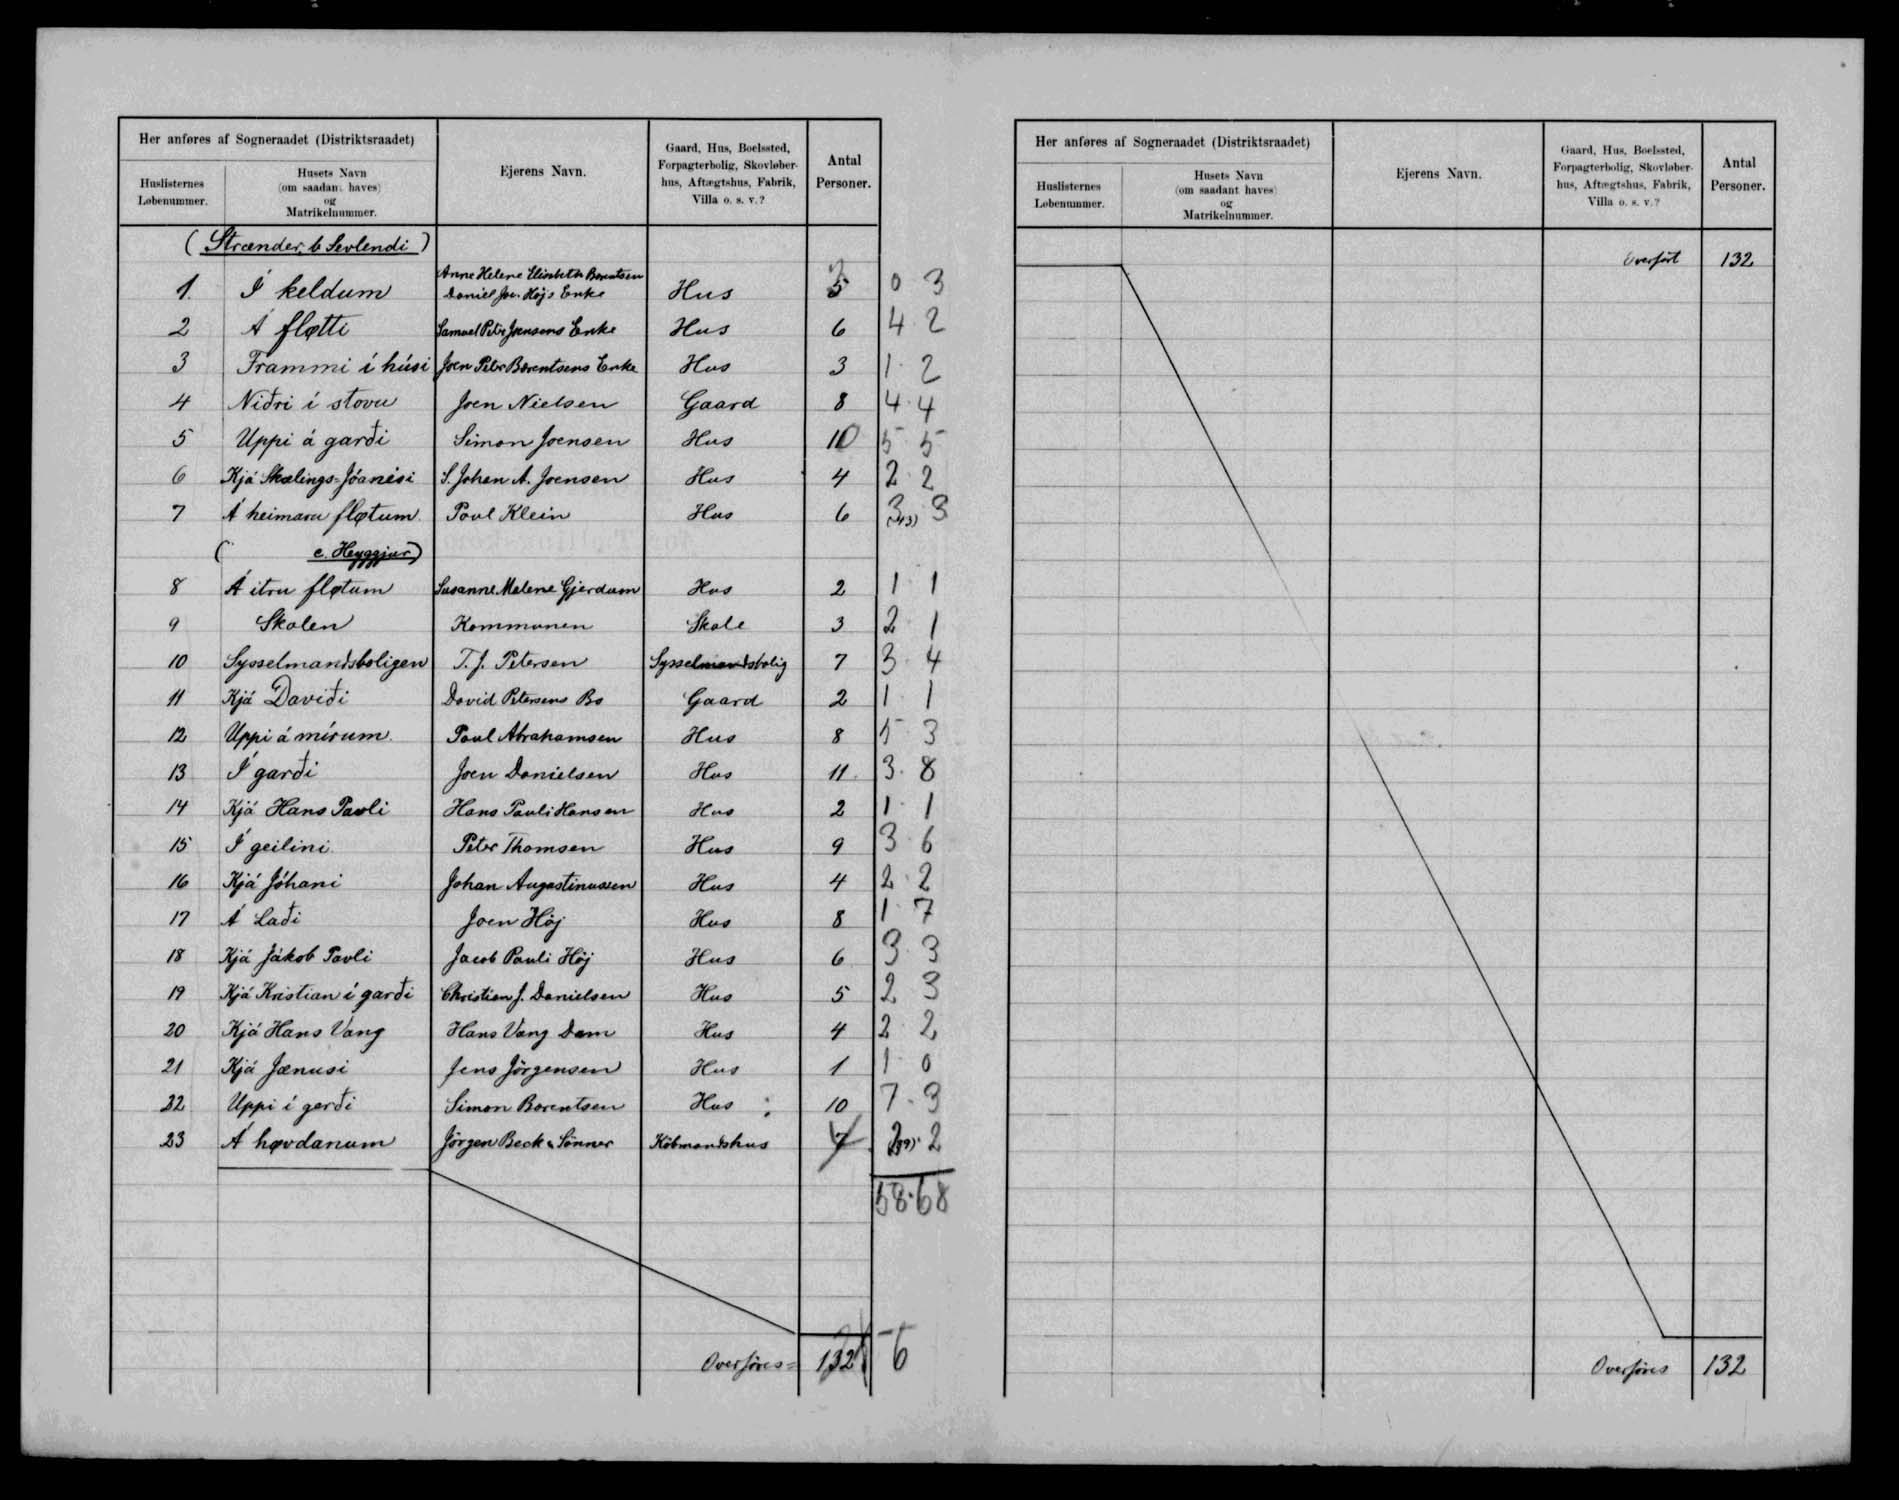 Her anføres af Sogneraadet (Distriktsraadet)
Huslisternes Løbenummer.
Husets Navn (om saadant haves) og Matrikelnummer.
Ejerens Navn.
Gaard, Hus, Boelssted, Forpagterbolig, Skovløberhus, Aftægtshus, Fabrik, Villa o. s. v.?
Antal Personer.
(Strænder, b Sevlendi)
Anne Helene Elisabeth Berentsen
1. Í keldum Daniel Joe. Højs Enke Hus 5 3 0 3
2 Á fløtti Samuel Peter Joensens Enke Hus 6 4 · 2
3 Frammi í húsi Joen Peter Berentsens Enke Hus 3 1 · 2
4 Niðri í stovu Joen Nielsen Gaard 8 4 · 4
5 Uppi á garði Simon Joensen Hus 10 5 · 5
6 Kjá Skælings-Jóanisi S. Johan A. Joensen Hus 4 2 · 2
7 Á heimaru fløtum Poul Klein Hus 6 3 (43) 3
( c. Heyggjur)
8 Á itru fløtum Susanne Malene Gjerdum Hus 2 1 1
9 Skolen Kommunen Skole 3 2 · 1
10 Sysselmandsboligen T. J. Petersen Sysselmandsbolig 7 3 · 4
11 Kjá Daviði David Petersens Bo Gaard 2 1 1
12 Uppi á mírum. Poul Abrahamsen Hus 8 5 3
13 Í garði Joen Danielsen Hus 11. 3 · 8
14 Kjá Hans Pauli Hans Pauli Hansen Hus 2 1 · 1
15 Í geilini Peter Thomsen Hus 9 3 · 6
16 Kjá Jóhani Johan Augustinussen Hus 4 2 · 2
17 Á Laði Joen Høj Hus 8 1 · 7
18 Kjá Jákob Pauli Jacob Pauli Høj Hus 6 3 · 3
19 Kjá Kristian í garði Christian J. Danielsen Hus 5 2 3
20 Kjá Hans Vang Hans Vang Dam Hus 4 2 · 2
21 Kjá Jænusi Jens Jörgensen Hus 1 1 · 0
22 Uppi í gerði Simon Berentsen Hus 10 7 · 3
23 Á høvdanum Jörgen Beck & Sönner Köbmandshus 2 (89) · 2
58 · 68
Overføres = 132 6
Her anføres af Sogneraadet (Distriktsraadet)
Huslisternes Løbenummer.
Husets Navn (om saadant haves) og Matrikelnummer.
Ejerens Navn.
Gaard, Hus, Boelssted, Forpagterbolig, Skovløberhus, Aftægtshus, Fabrik, Villa o. s. v.?
Antal Personer.
Overført 132
Overføres 132